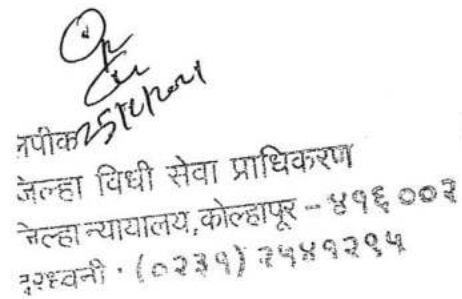 25/8/2021
लपीक
जिल्हा विधी सेवा प्राधिकरण
जिल्हा न्यायालय,कोल्हापूर – ४१६ ००३
दूरध्वनी : (०२३१) २५४१२९५